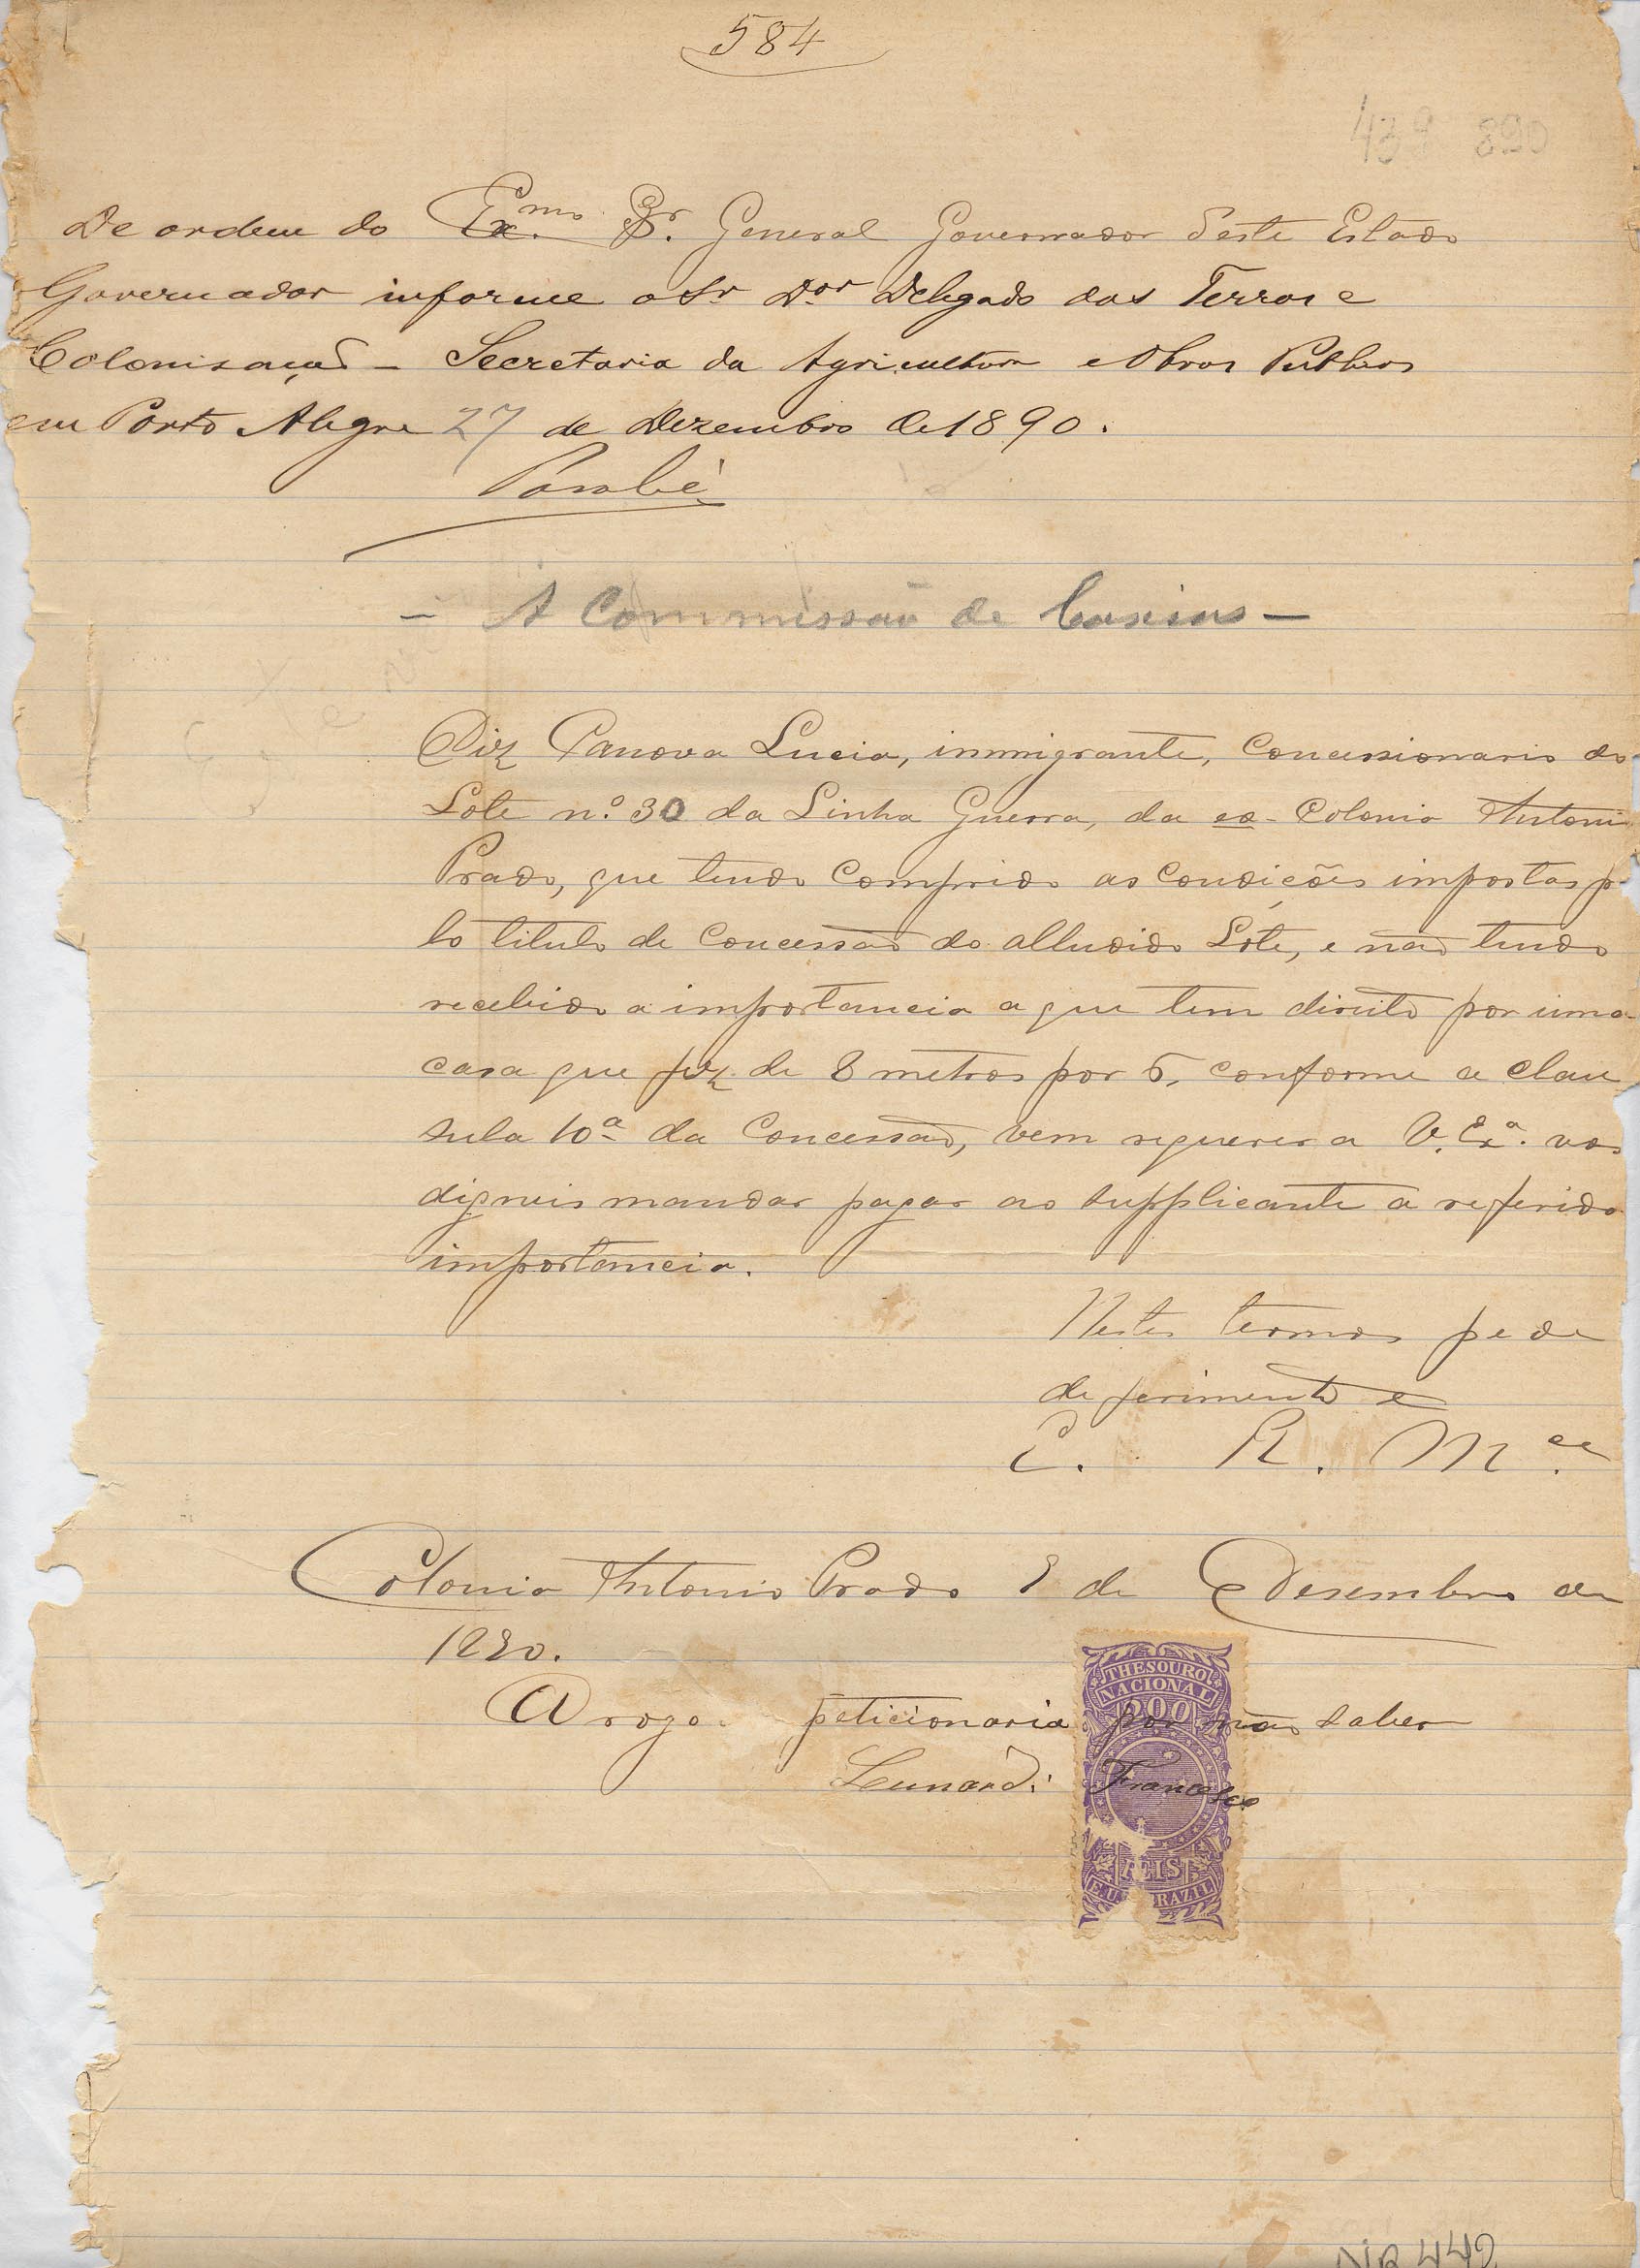 584
439 890
Ex.mo Sr. General Governador deste Estado
De ordem do
Governador informe o Sr Dor Delegado das Terras e
Colonisação - Secretaria da Agricultura e Obras Publicas
em Porto Alegre 27 de Dezembro de 1890.
Parobé
- A Commissão de Caxias -
Diz Panova Lucia, immigrante, concessionario do
Lote n.º 30 da Linha Guerra, da ex-Colonia Antonio
Prado, que tendo comprido as condições impostas p
lo titulo de concessão do alludido Lote, e não tendo
recebido a importancia a que tem direito por uma
casa que fez de 8 metros por 5, conforme a clau
sula 10ª da Concessão, vem requerer a V. Exª. vos
digneis mandar pagar ao supplicante a referida
importancia.
Nestes termos pede
deferimento e
E. R. Mce.
Colonia Antonio Prado 8 de Desembro de
1890.
A rogo peticionaria por não saber
Lunardi Francesco
THESOURO
NACIONAL
200
REIS
E.U. BRAZIL
NR 442